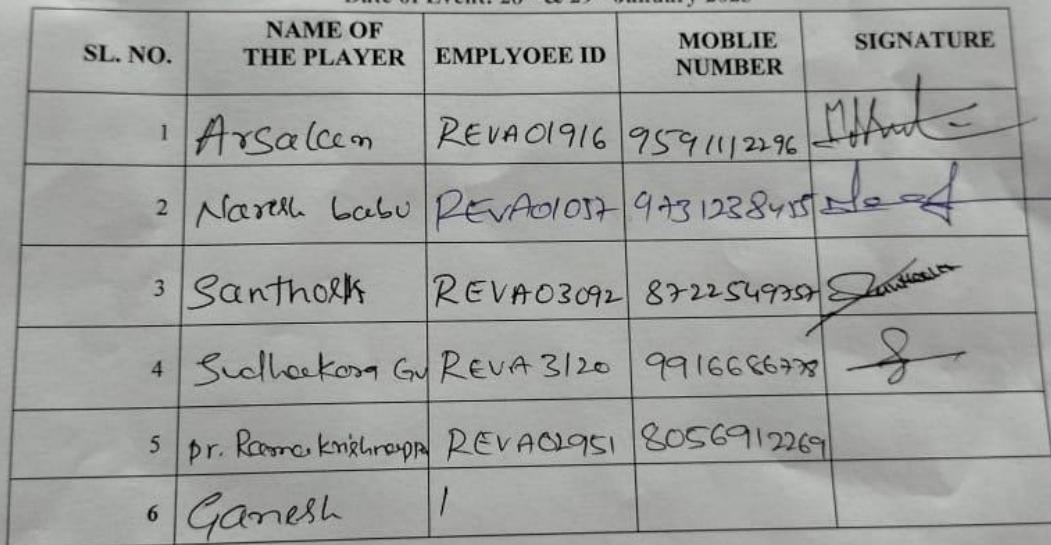 SL. NO. NAME OF THE PLAYER EMPLYOEE ID MOBLIE NUMBER SIGNATURE
1 Arsalcen REVA01916 9591112296
2 Naresh babu REVA01057 9731238455
3 Santhosh REVA03092 8722549757
4 Sudhakara Gv REVA 3120 9916686778
5 Dr. Rama Krishnappa REVA02951 8056912269
6 Ganesh